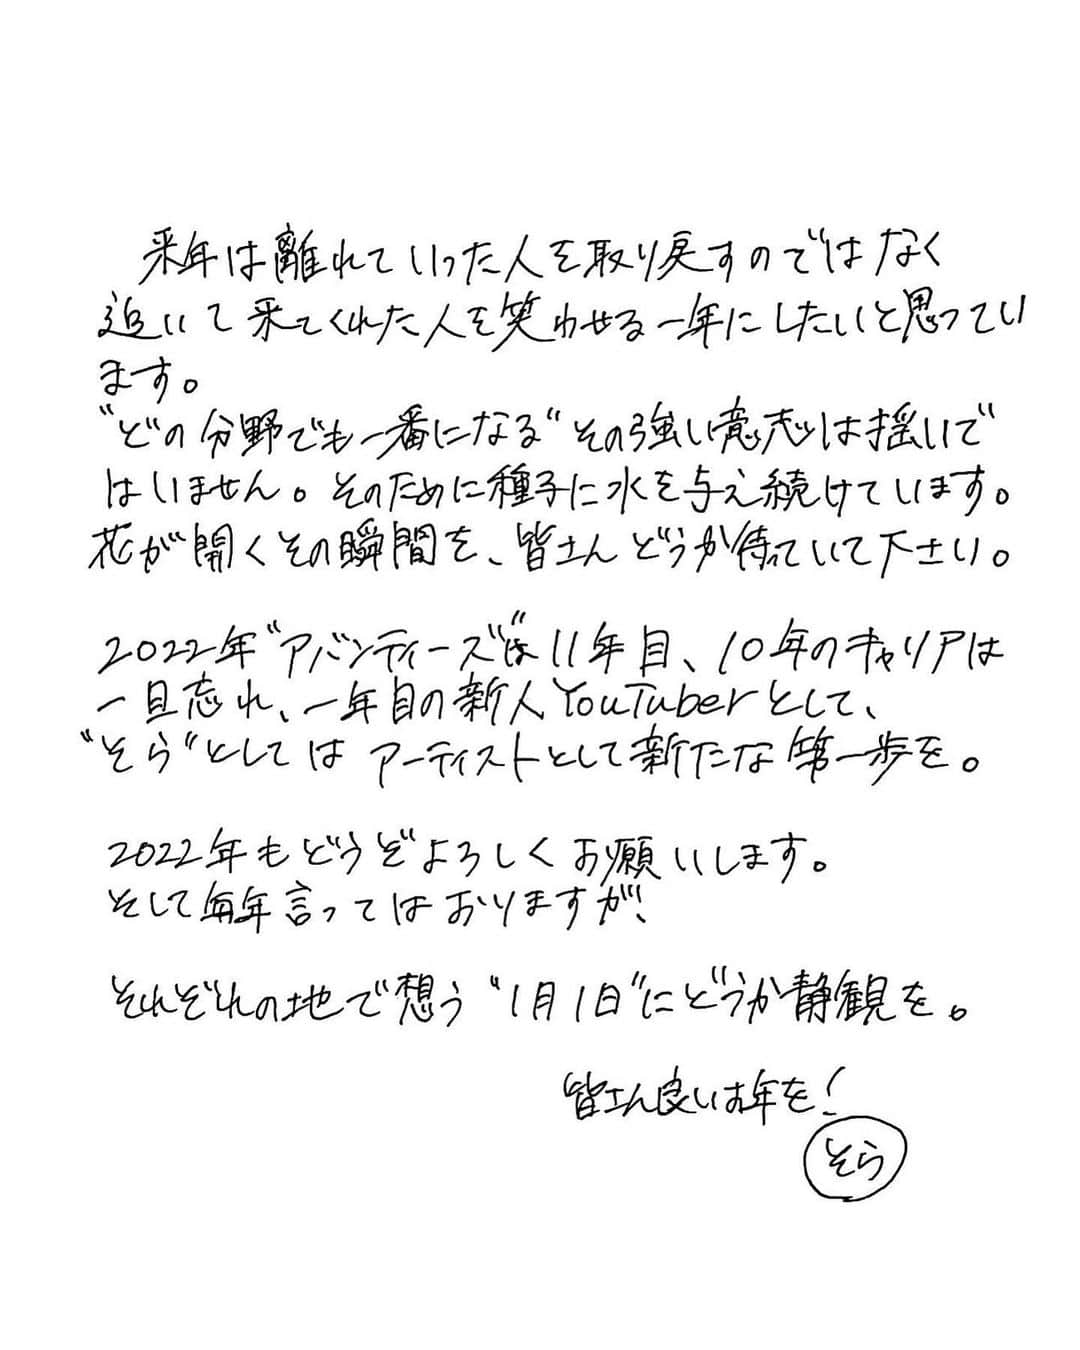 来年は離れていった人を取り戻すのではなく
追いて来てくれた人を笑わせる一年にしたいと思ってい
ます。
“どの分野でも一番になる“その強い意志は揺いで
はいません。そのために種子に水を与え続けています。
花が開くその瞬間を、皆さんどうか待っていて下さい。
2022年“アバンティーズ“は11年目、10年のキャリアは
一旦忘れ、一年目の新人YouTuberとして、
“そら“としてはアーティストとして新たな第一歩を。
2022年もどうぞよろしくお願いします。
そして毎年言ってはおりますが、
それぞれの地で想う“1月1日“にどうか静観を。
皆さん良いお年を!
そら